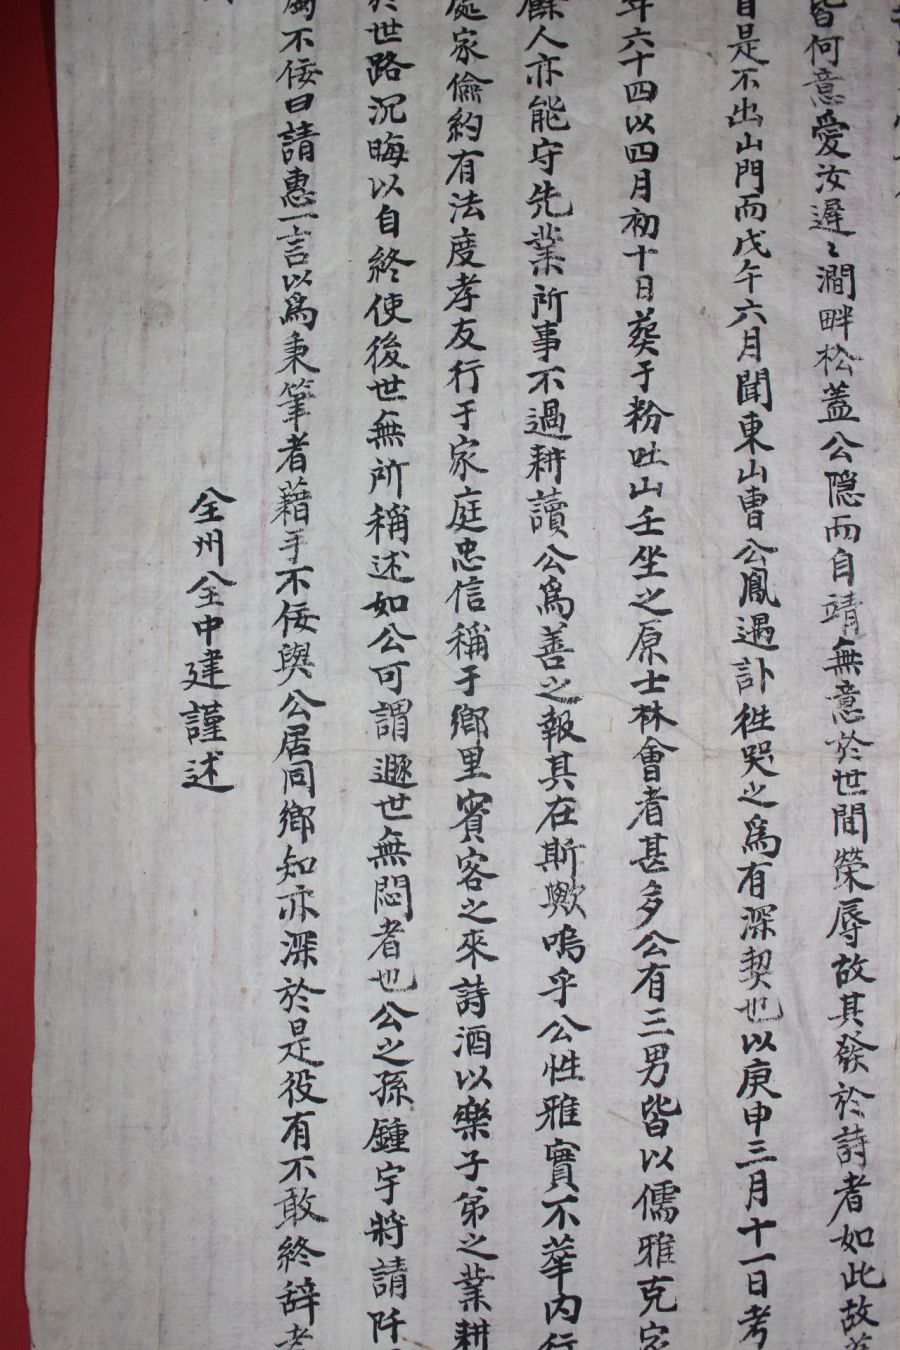 皆何意愛汝遲〻澗畔松盖公隐而自靖無意於世間榮辱故其發於詩者如此故
自是不出山門而戊午六月聞東山曺公鳳遇訃徃哭之爲有深契也以庚申三月十一日考
年六十四以四月初十日葵于粉吐山壬坐之原士林會者甚多公有三男皆以儒雅克家
人亦能守先業所事不過耕讀公爲善之報其在斯歟嗚乎公性雅實不華内行
處家儉約有法度孝友行于家庭忠信稱于鄉里賓客之來詩酒以樂子弟之業耕
於世路沉晦以自終使後世無所稱述如公可謂遯世無悶者也公之孫鍾宇將請阡
不佞曰請惠一言以爲秉筆者藉手不佞與公居同鄉知亦深於是役有不敢終辞者
全州全中建謹述